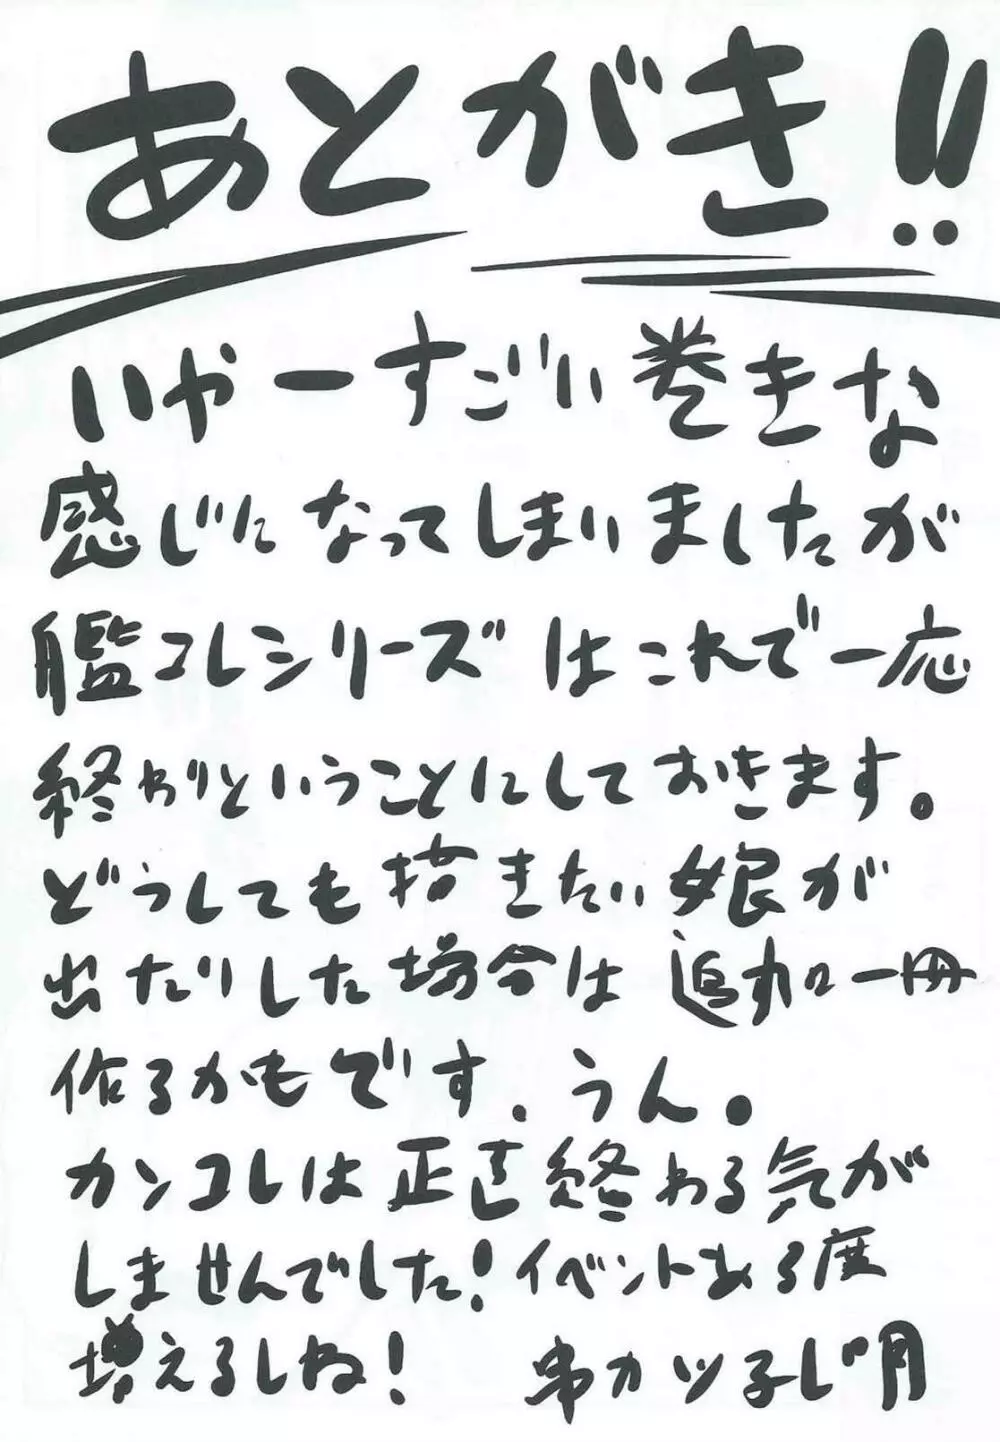 あとがき!!
いやーすごい巻きな
感じになってしまいましたが
艦コレシリーズはこれで一応
終わりということにしておきます。
どうしても描きたい娘が
出たりした場合は追加一冊
作るかもです。うん。
カンコレは正直終わる気が
しませんでした!イベントある度
増えるしね! 串カツ子じ月